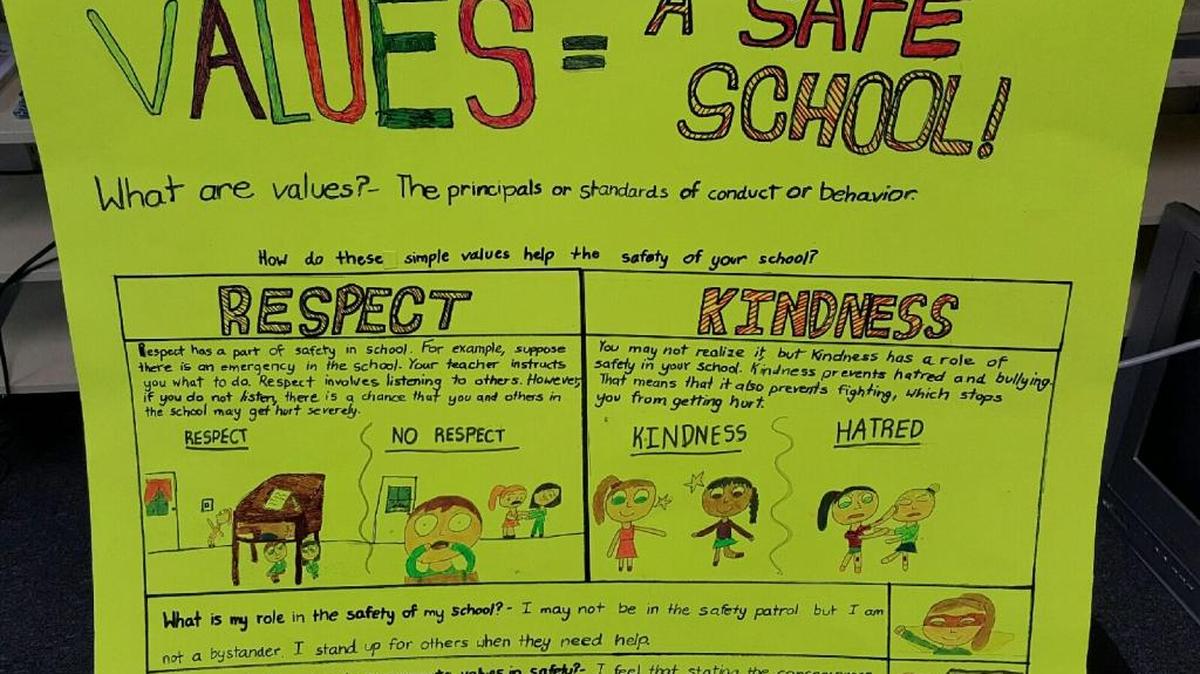 VALUES = A SAFE
SCHOOL!
What are values?- The principals or standards of conduct or behavior.
How do these simple values help the safety of your school?
RESPECT
Respect has a part of safety in school. For example, suppose
there is an emergency in the school. Your teacher instructs
you what to do. Respect involves listening to others. However,
if you do not listen, there is a chance that you and others in
the school may get hurt severely.
RESPECT
NO RESPECT
KINDNESS
You may not realize it, but Kindness has a role of
safety in your school. Kindness prevents hatred and bullying.
That means that it also prevents fighting, which stops
you from getting hurt.
KINDNESS
HATRED
What is my role in the safety of my school?- I may not be in the safety patrol but I am
not a bystander. I stand up for others when they need help.
values in safety?- I feel that stating the